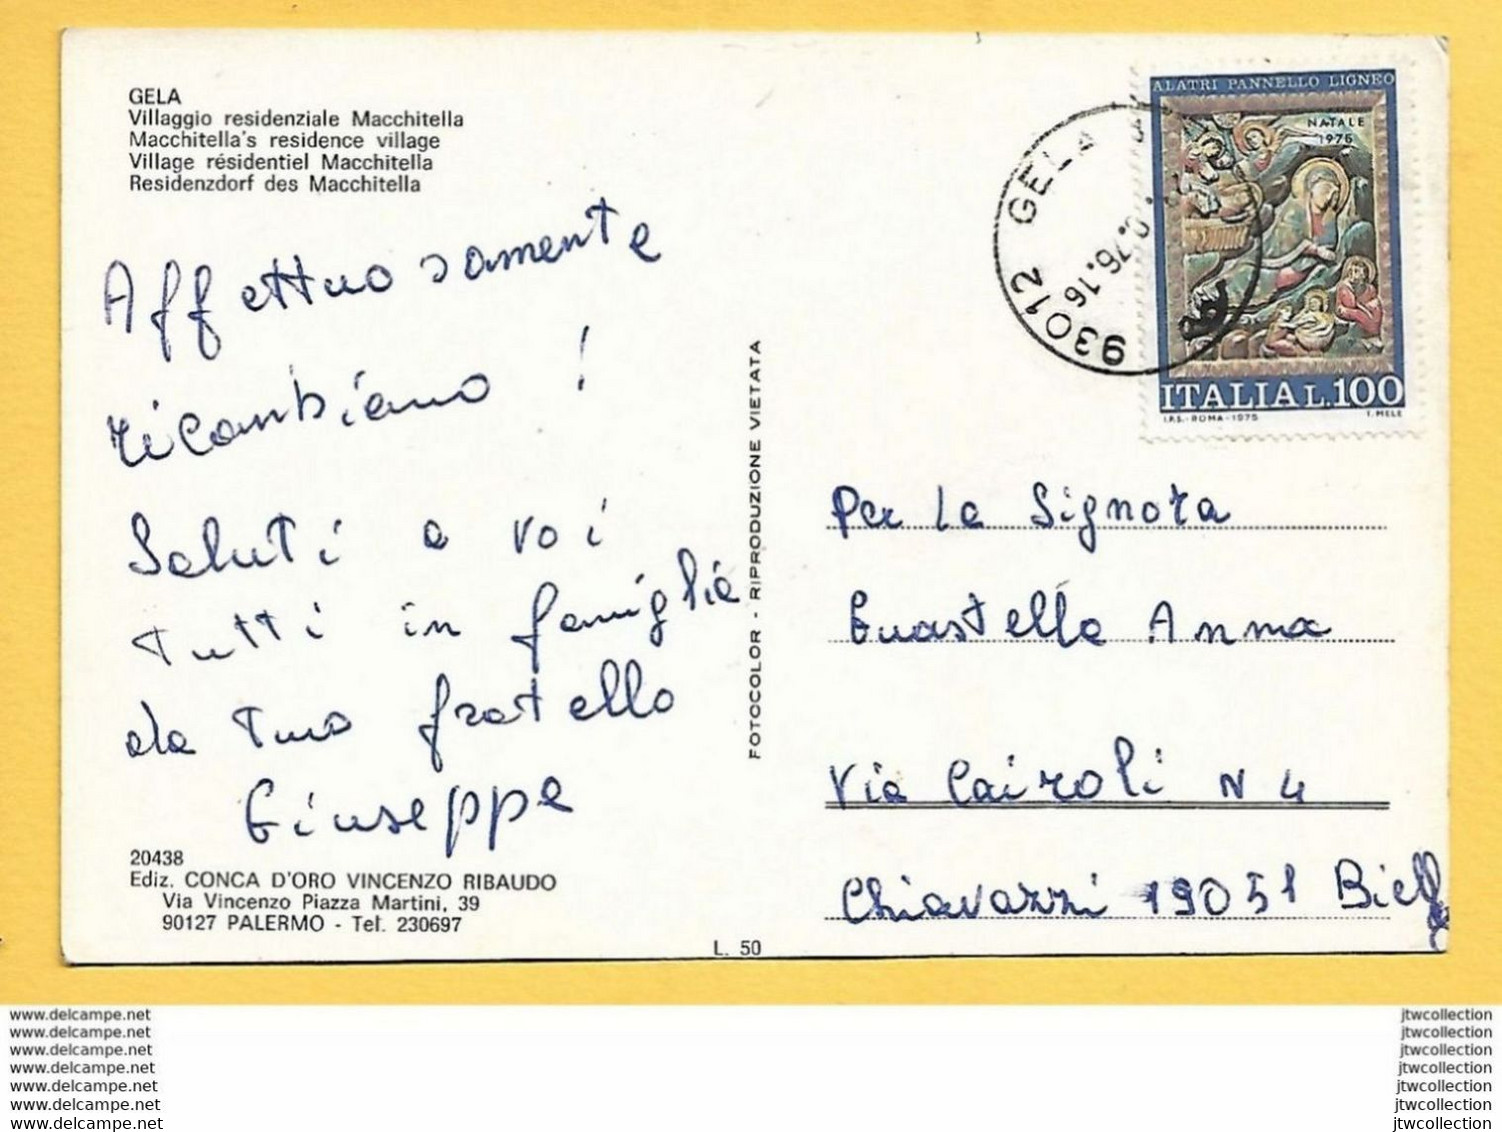 GELA
Villaggio residenziale Macchitella
Macchitella's residence village
Village résidentiel Macchitella
Residenzdorf des Macchitella
Affettuosamente
ricambiamo !
Saluti a voi
tutti in famiglia
da tuo fratello
Giuseppe
20438
Ediz. CONCA D'ORO VINCENZO RIBAUDO
Via Vincenzo Piazza Martini, 39
90127 PALERMO - Tel. 230697
FOTOCOLOR - RIPRODUZIONE VIETATA
L. 50
93012 GELA
.76.16
ALATRI PANNELLO LIGNEO
NATALE
1975
ITALIA L.100
I.P.S.-ROMA-1975 T. MELE
Per la Signora
Guastella Anna
Via Cairoli N 4
Chiavazzi 19051 Biella
www.delcampe.net
www.delcampe.net
www.delcampe.net
www.delcampe.net
www.delcampe.net
www.delcampe.net
www.delcampe.net
jtwcollection
jtwcollection
jtwcollection
jtwcollection
jtwcollection
jtwcollection
jtwcollection